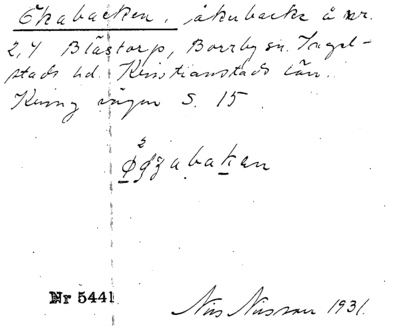 Ekabacken, åkerbacke å nr.
2,4 Blästorp, Borrby sn. Ingel-
stads hd. Kristianstads län.
Kring vägen S. 15
Nr 5441
Nils Nilsson 1931.